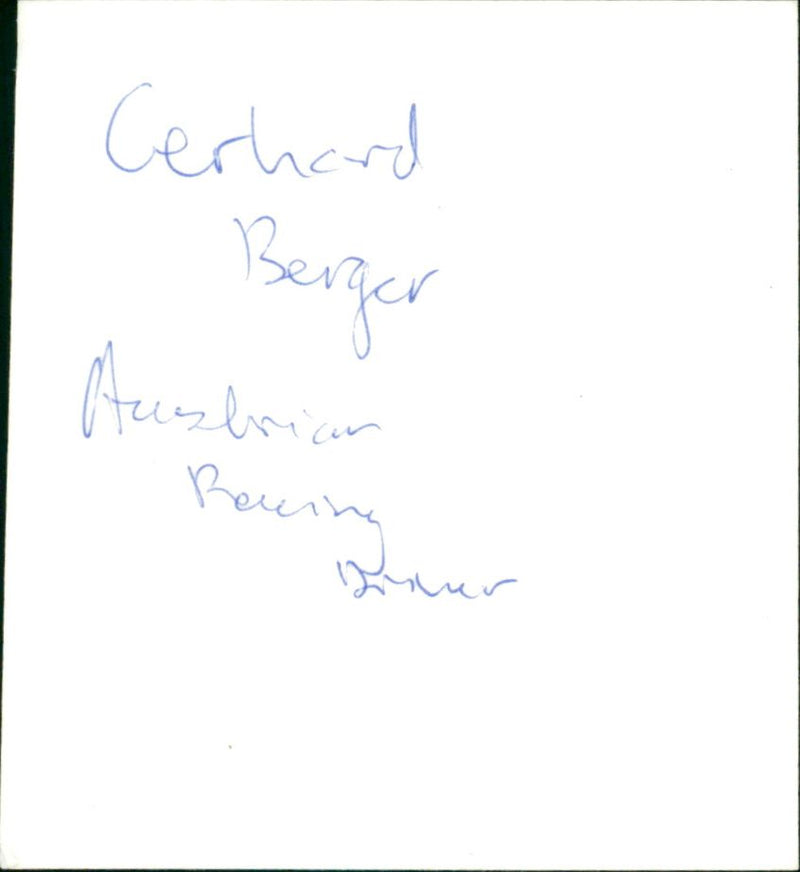 Gerhard
Berger
Austrian
Racing
Driver